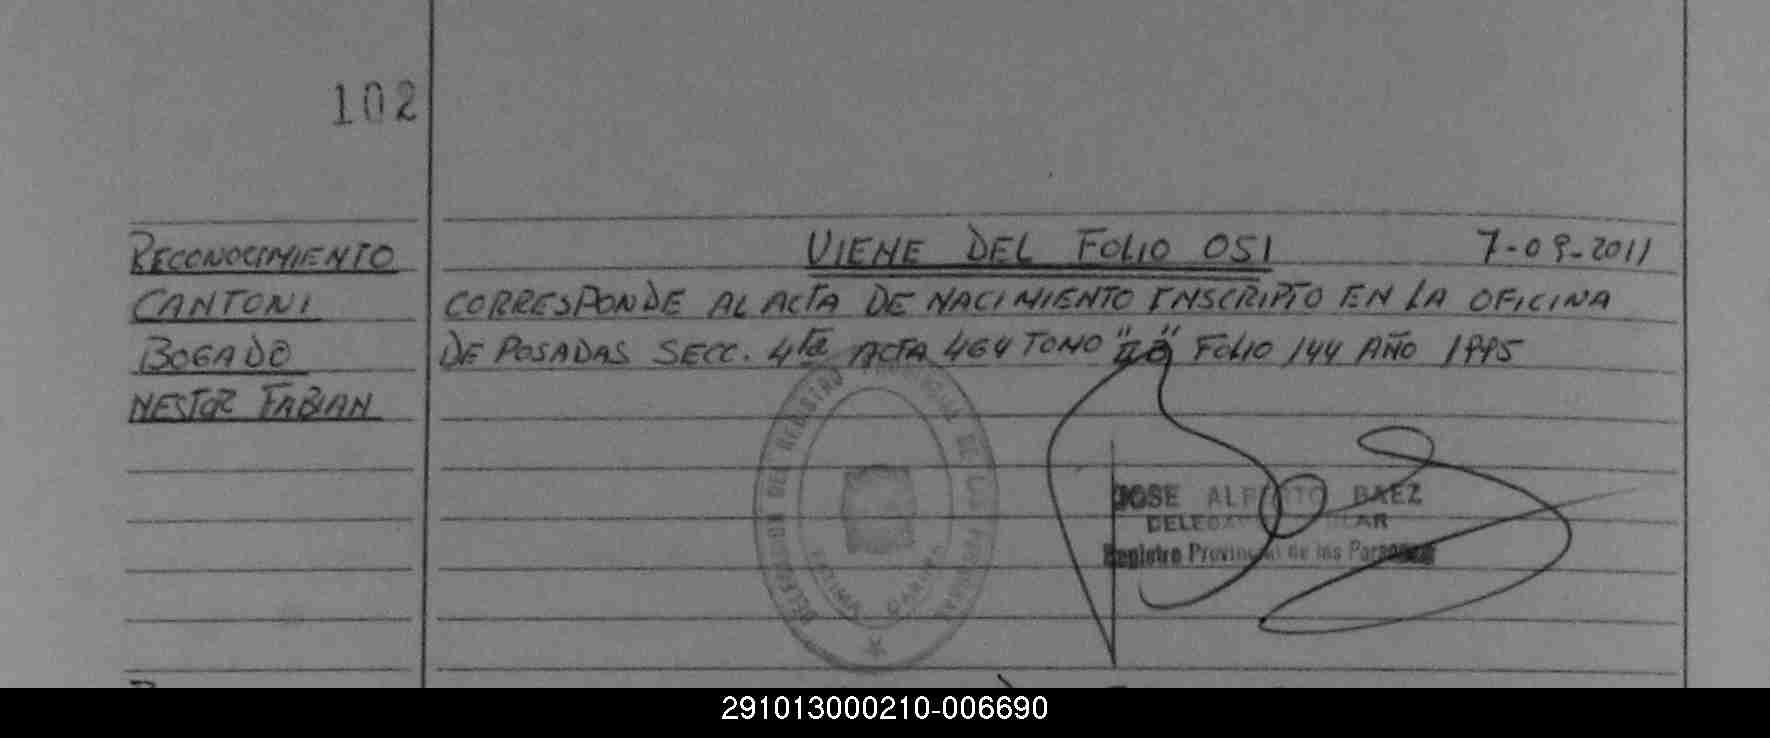 102
VIENE DEL FOLIO 051 7-09-2011
RECONOCIMIENTO
CANTONI
BOGADO
NESTOR FABIAN
CORRESPONDE AL ACTA DE NACIMIENTO INSCRIPTO EN LA OFICINA
DE POSADAS SECC. 4ta ACTA 464 TOMO FOLIO 144 AÑO 1995
DEL REGISTRO DE LAS
JOSE ALBERTO BAEZ
Registro Provincial de las Personas
291013000210-006690